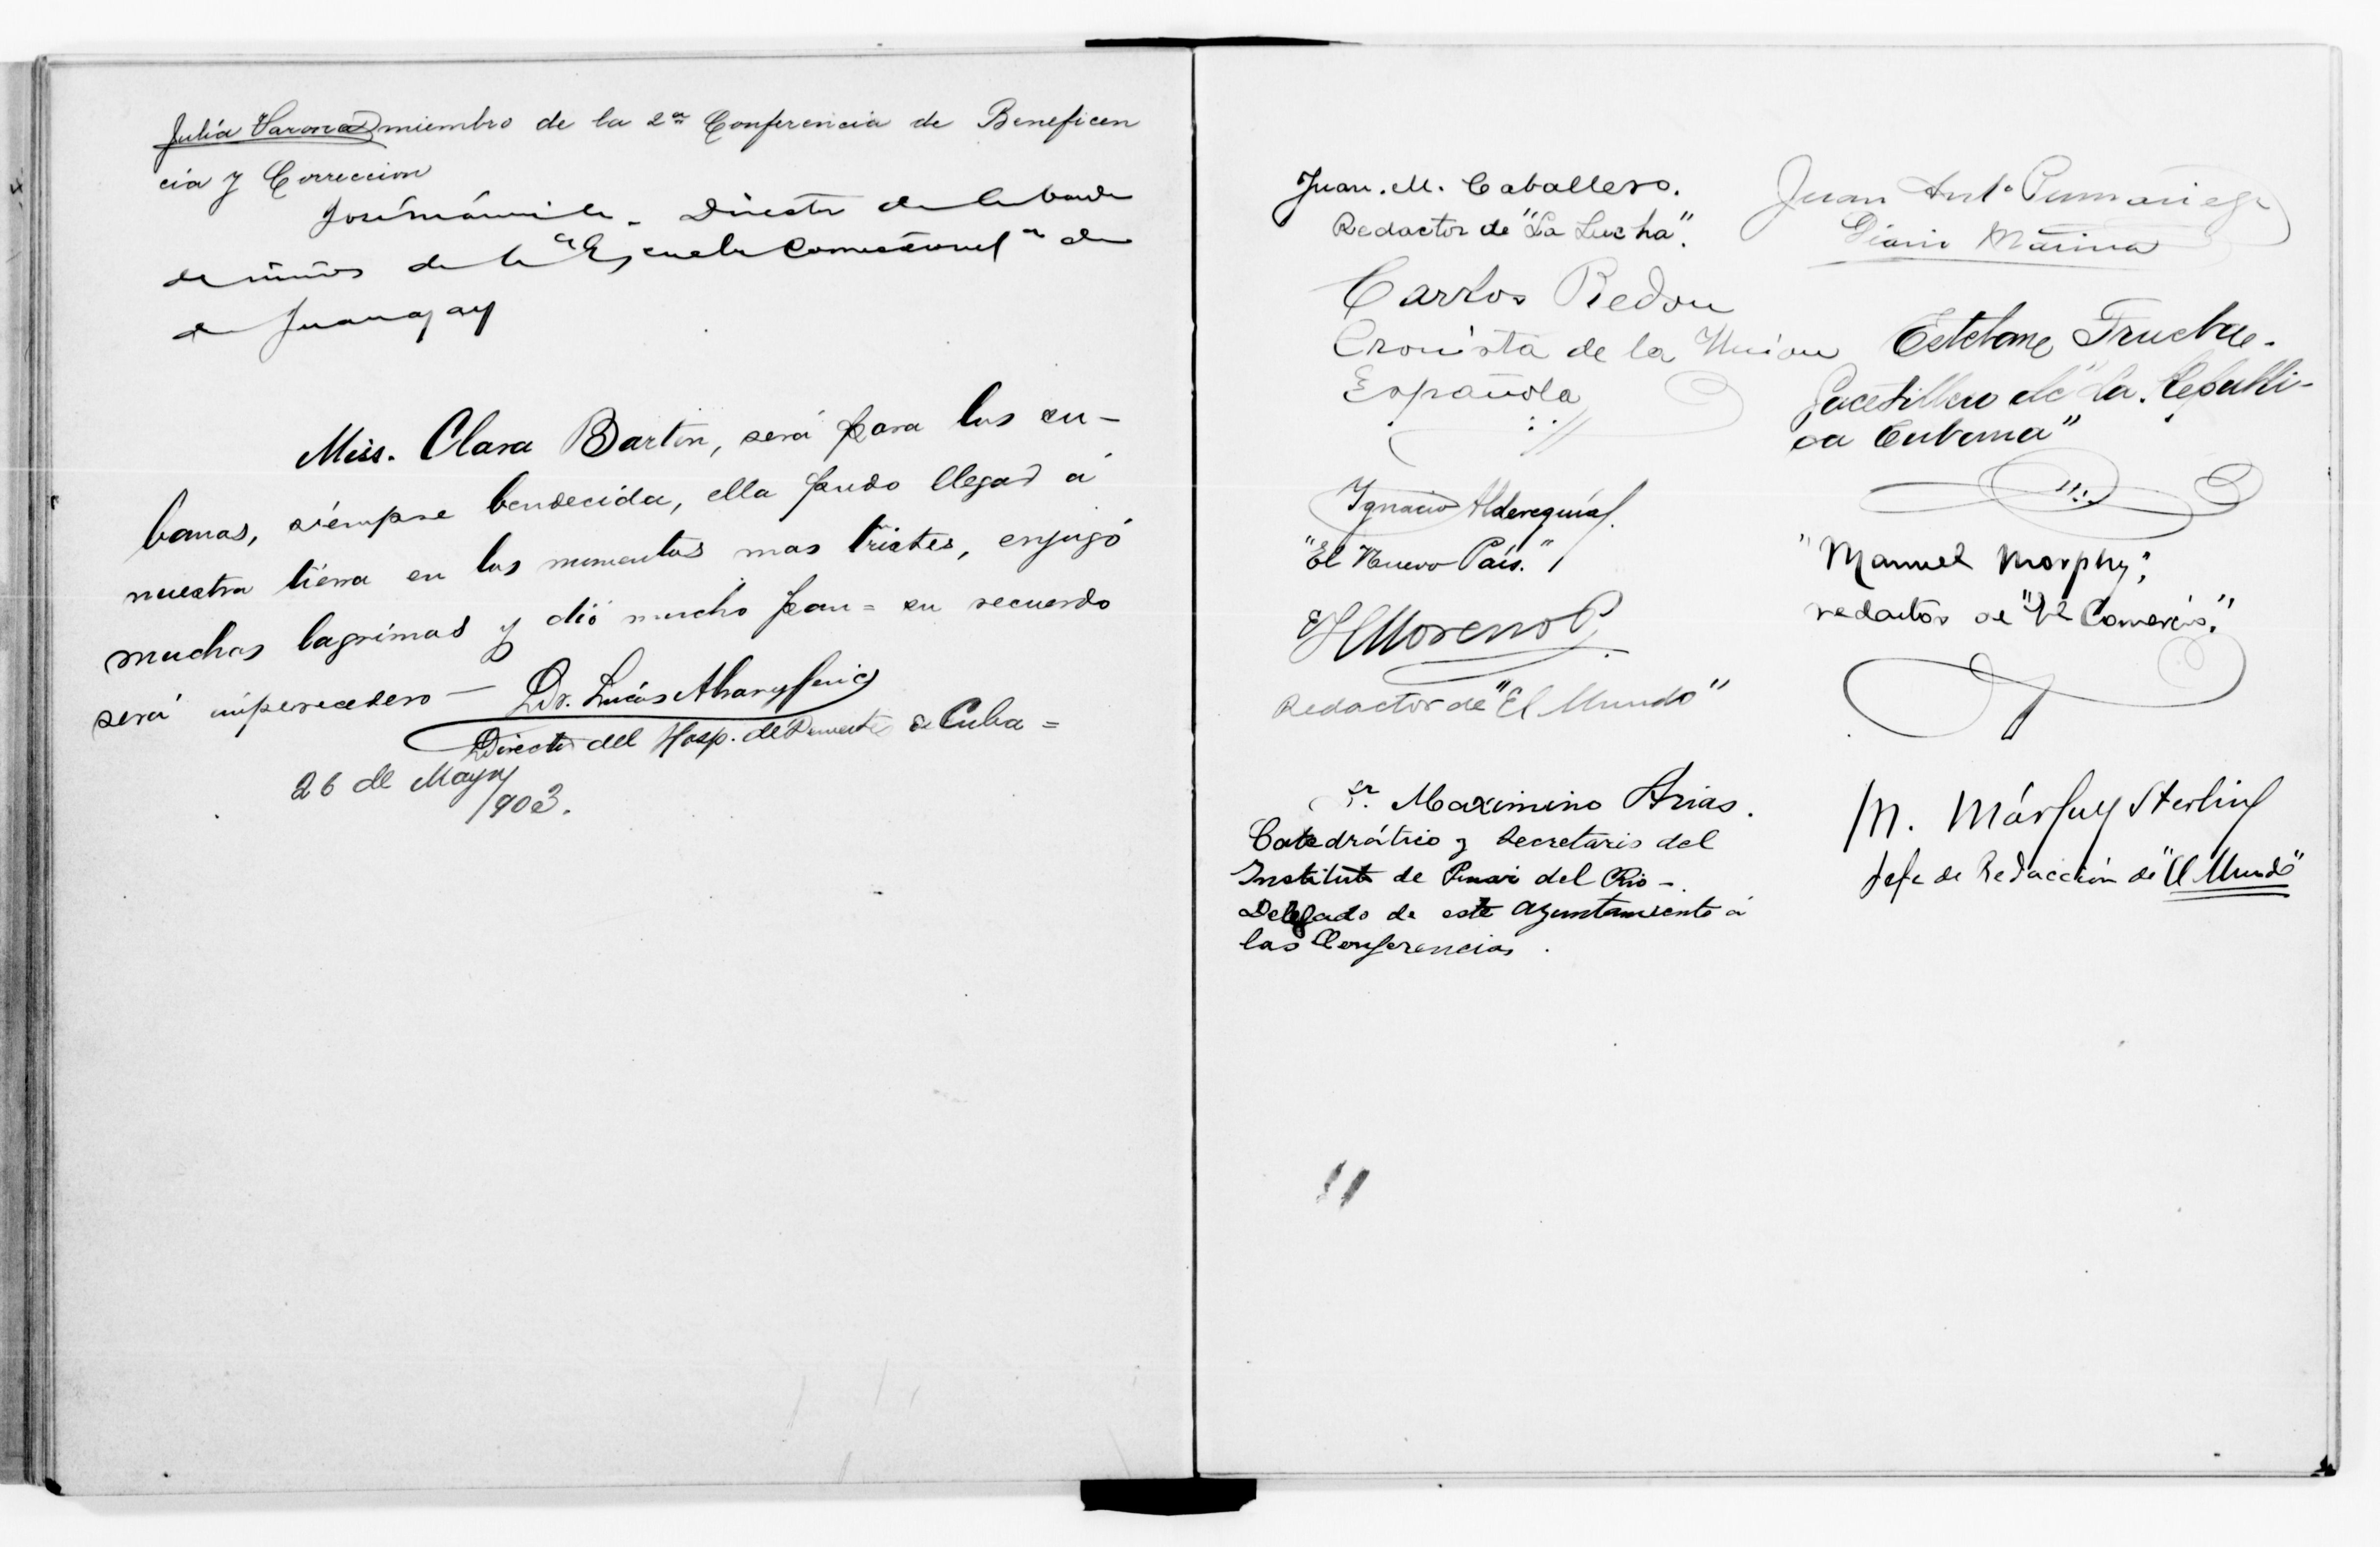 Julia Varona miembro de la 2ª Conferencia de Beneficen
cia y Correccion
Director de la banda
de niños de la "Escuela Correccional" de
de Guanajay
Miss. Clara Barton, será para los cu-
banos, siempre bendecida, ella pudo llegar á
nuestra tierra en los momentos mas tristes, enjugó
muchas lagrimas y dió mucho pan = su recuerdo
será imperecedero — Dr. Lucas Alvarez
Director del Hosp. de Dementes de Cuba =
26 de Mayo
/903.
Juan. M. Caballero.
Redactor de "La Lucha".
Carlos Redon
Cronista de la Union
Española
Ignacio Aldereguía
"El Nuevo País."
Moreno
Redactor de "El Mundo"
Maximino Arias.
Catedrático y Secretario del
Instituto de Pinar del Rio -.
Delegado de este Ayuntamiento á
las Conferencias.
Juan Antº Pumariega
Diario Marina
Esteban Trueba.
Gacetillero de "La Republi-
ca Cubana"
"Manuel Morphy",
redactor de "El Comercio."
M. Márquez Sterling
Jefe de Redacción de "El Mundo"